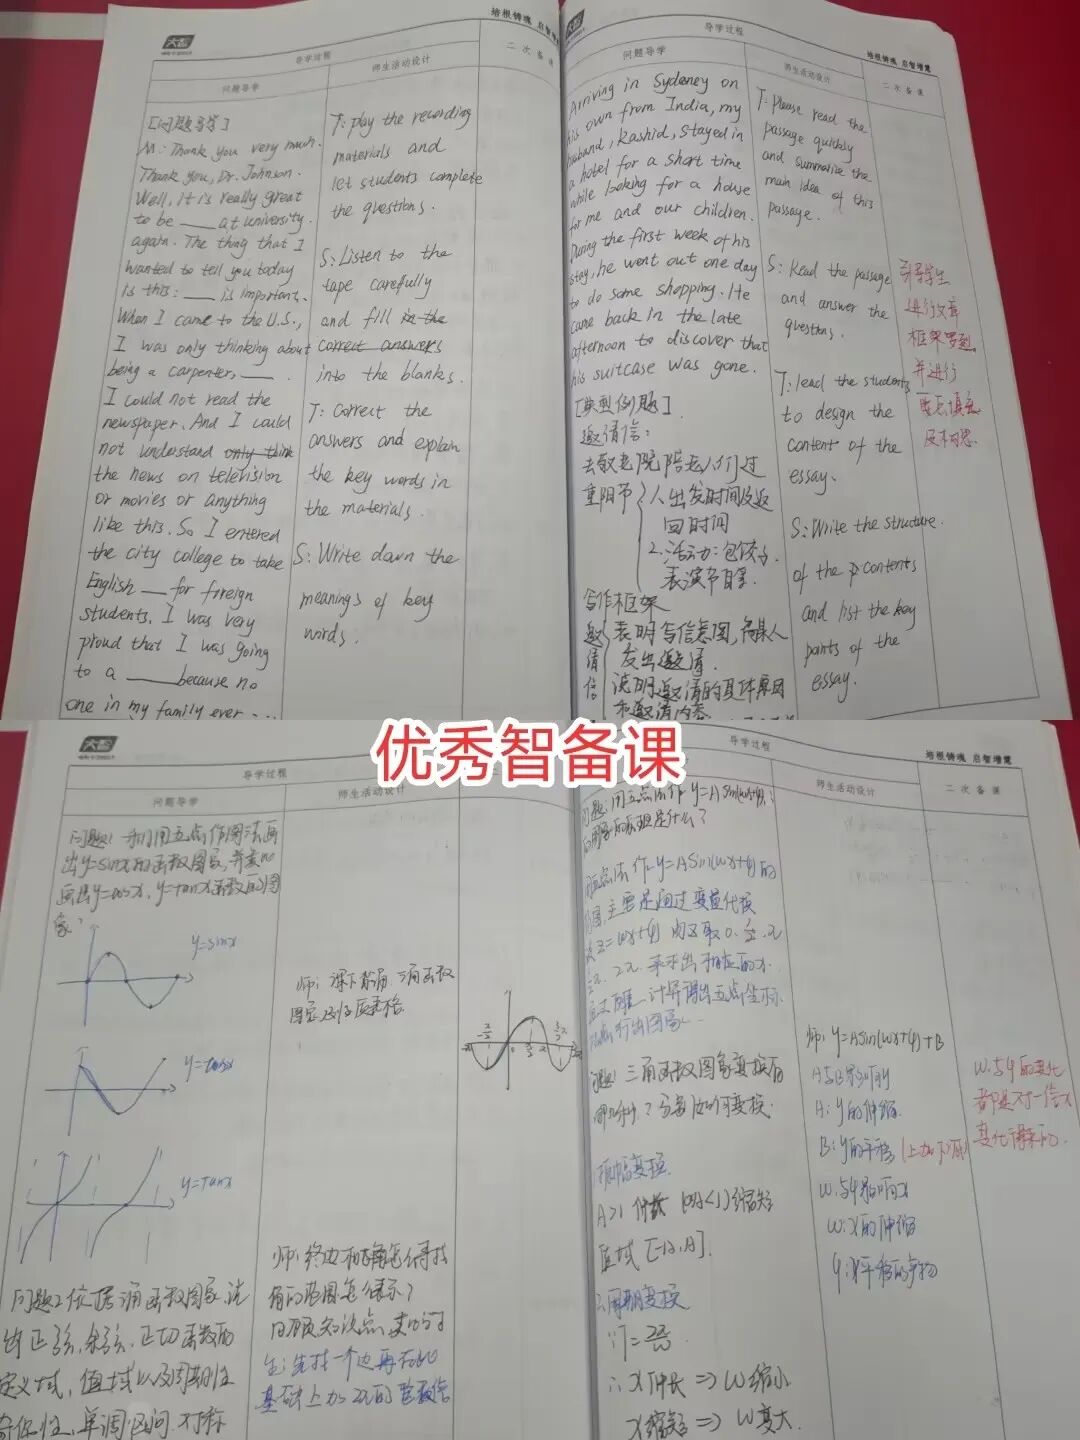 大志
培根铸魂 启智增慧
导学过程
问题导学
师生活动设计
二次备课
[问题导学]
M: Thank you very much.
Thank you, Dr. Johnson.
Well, it is really great
to be ___ at university
again. The thing that I
wanted to tell you today
is this: ___ is important.
When I came to the U.S.,
I was only thinking about
being a carpenter, ___.
I could not read the
newspaper. And I could
not understand only think
the news on television
or movies or anything
like this. So I entered
the city college to take
English ___ for foreign
students. I was very
proud that I was going
to a ___ because no
one in my family ever ...
T: play the recording
materials and
let students complete
the questions.
S: Listen to the
tape carefully
and fill in the
correct answers
into the blanks.
T: Correct the
answers and explain
the key words in
the materials.
S: Write down the
meanings of key
words.
导学过程
培根铸魂 启智增慧
问题导学
师生活动设计
二次备课
Arriving in Sydeney on
his own from India, my
husband, Rashid, stayed in
a hotel for a short time
while looking for a house
for me and our children.
During the first week of his
stay, he went out one day
to do some shopping. He
came back in the late
afternoon to discover that
his suitcase was gone.
[典型例题]
邀请信:
去敬老院陪老人们过
重阳节
1. 出发时间及返
回时间
2. 活动: 包饺子,
表演节目等.
写作框架
邀请信
表明写信意图, 向某人
发出邀请.
说明邀请的具体原因
和邀请内容.
T: Please read the
passage quickly
and summarize the
main idea of this
passage.
S: Read the passage
and answer the
questions.
T: lead the students
to design the
content of the
essay.
S: Write the structure
of the p contents
and list the key
points of the
essay.
引导学生
进行文章
框架
并进行
优秀智备课
大志
导学过程
问题导学
师生活动设计
问题1 我们用五点作图法画
出y=sinx的函数图象, 并
画出y=cosx, y=tanx函数的图
象?
y=sinx
y=cosx
y=tanx
问题2 依据三角函数图象, 说
出正弦, 余弦, 正切函数的
定义域, 值域以及周期性
奇偶性, 单调区间, 对称
师: 课下背诵三角函数
图象及性质表格
师: 终边相同角怎么寻找
角的范围怎么表示?
生: 先找一个边再在此
基础上加2π的整数倍
导学过程
培根铸魂 启智增慧
问题导学
师生活动设计
二次备课
问题: 用五点法作y=Asin(ωx+φ)
的图象的原理是什么?
用五点法作y=Asin(ωx+φ)的
图, 主要是通过变量代换
设z=ωx+φ 由z取0, π/2, π
3π/2, 2π 来求出相应的x,
计算得出五点坐标
描点后得出图象.
问题 三角函数图象变换有
哪几种? 分别如何变换.
1.振幅变换
A>1 伸长 (0<A<1) 缩短
值域 [-A, A].
2.周期变换
∵T=2π/ω
∴x伸长 => ω缩小
x缩短 => ω变大.
师: y=Asin(ωx+φ)+B
A与B影响y
A: y的伸缩.
B: y的平移 (上加下减)
ω与φ影响x
ω: x的伸缩
φ: x平移的
ω与φ的变化
都是对一倍x
变化得来的.